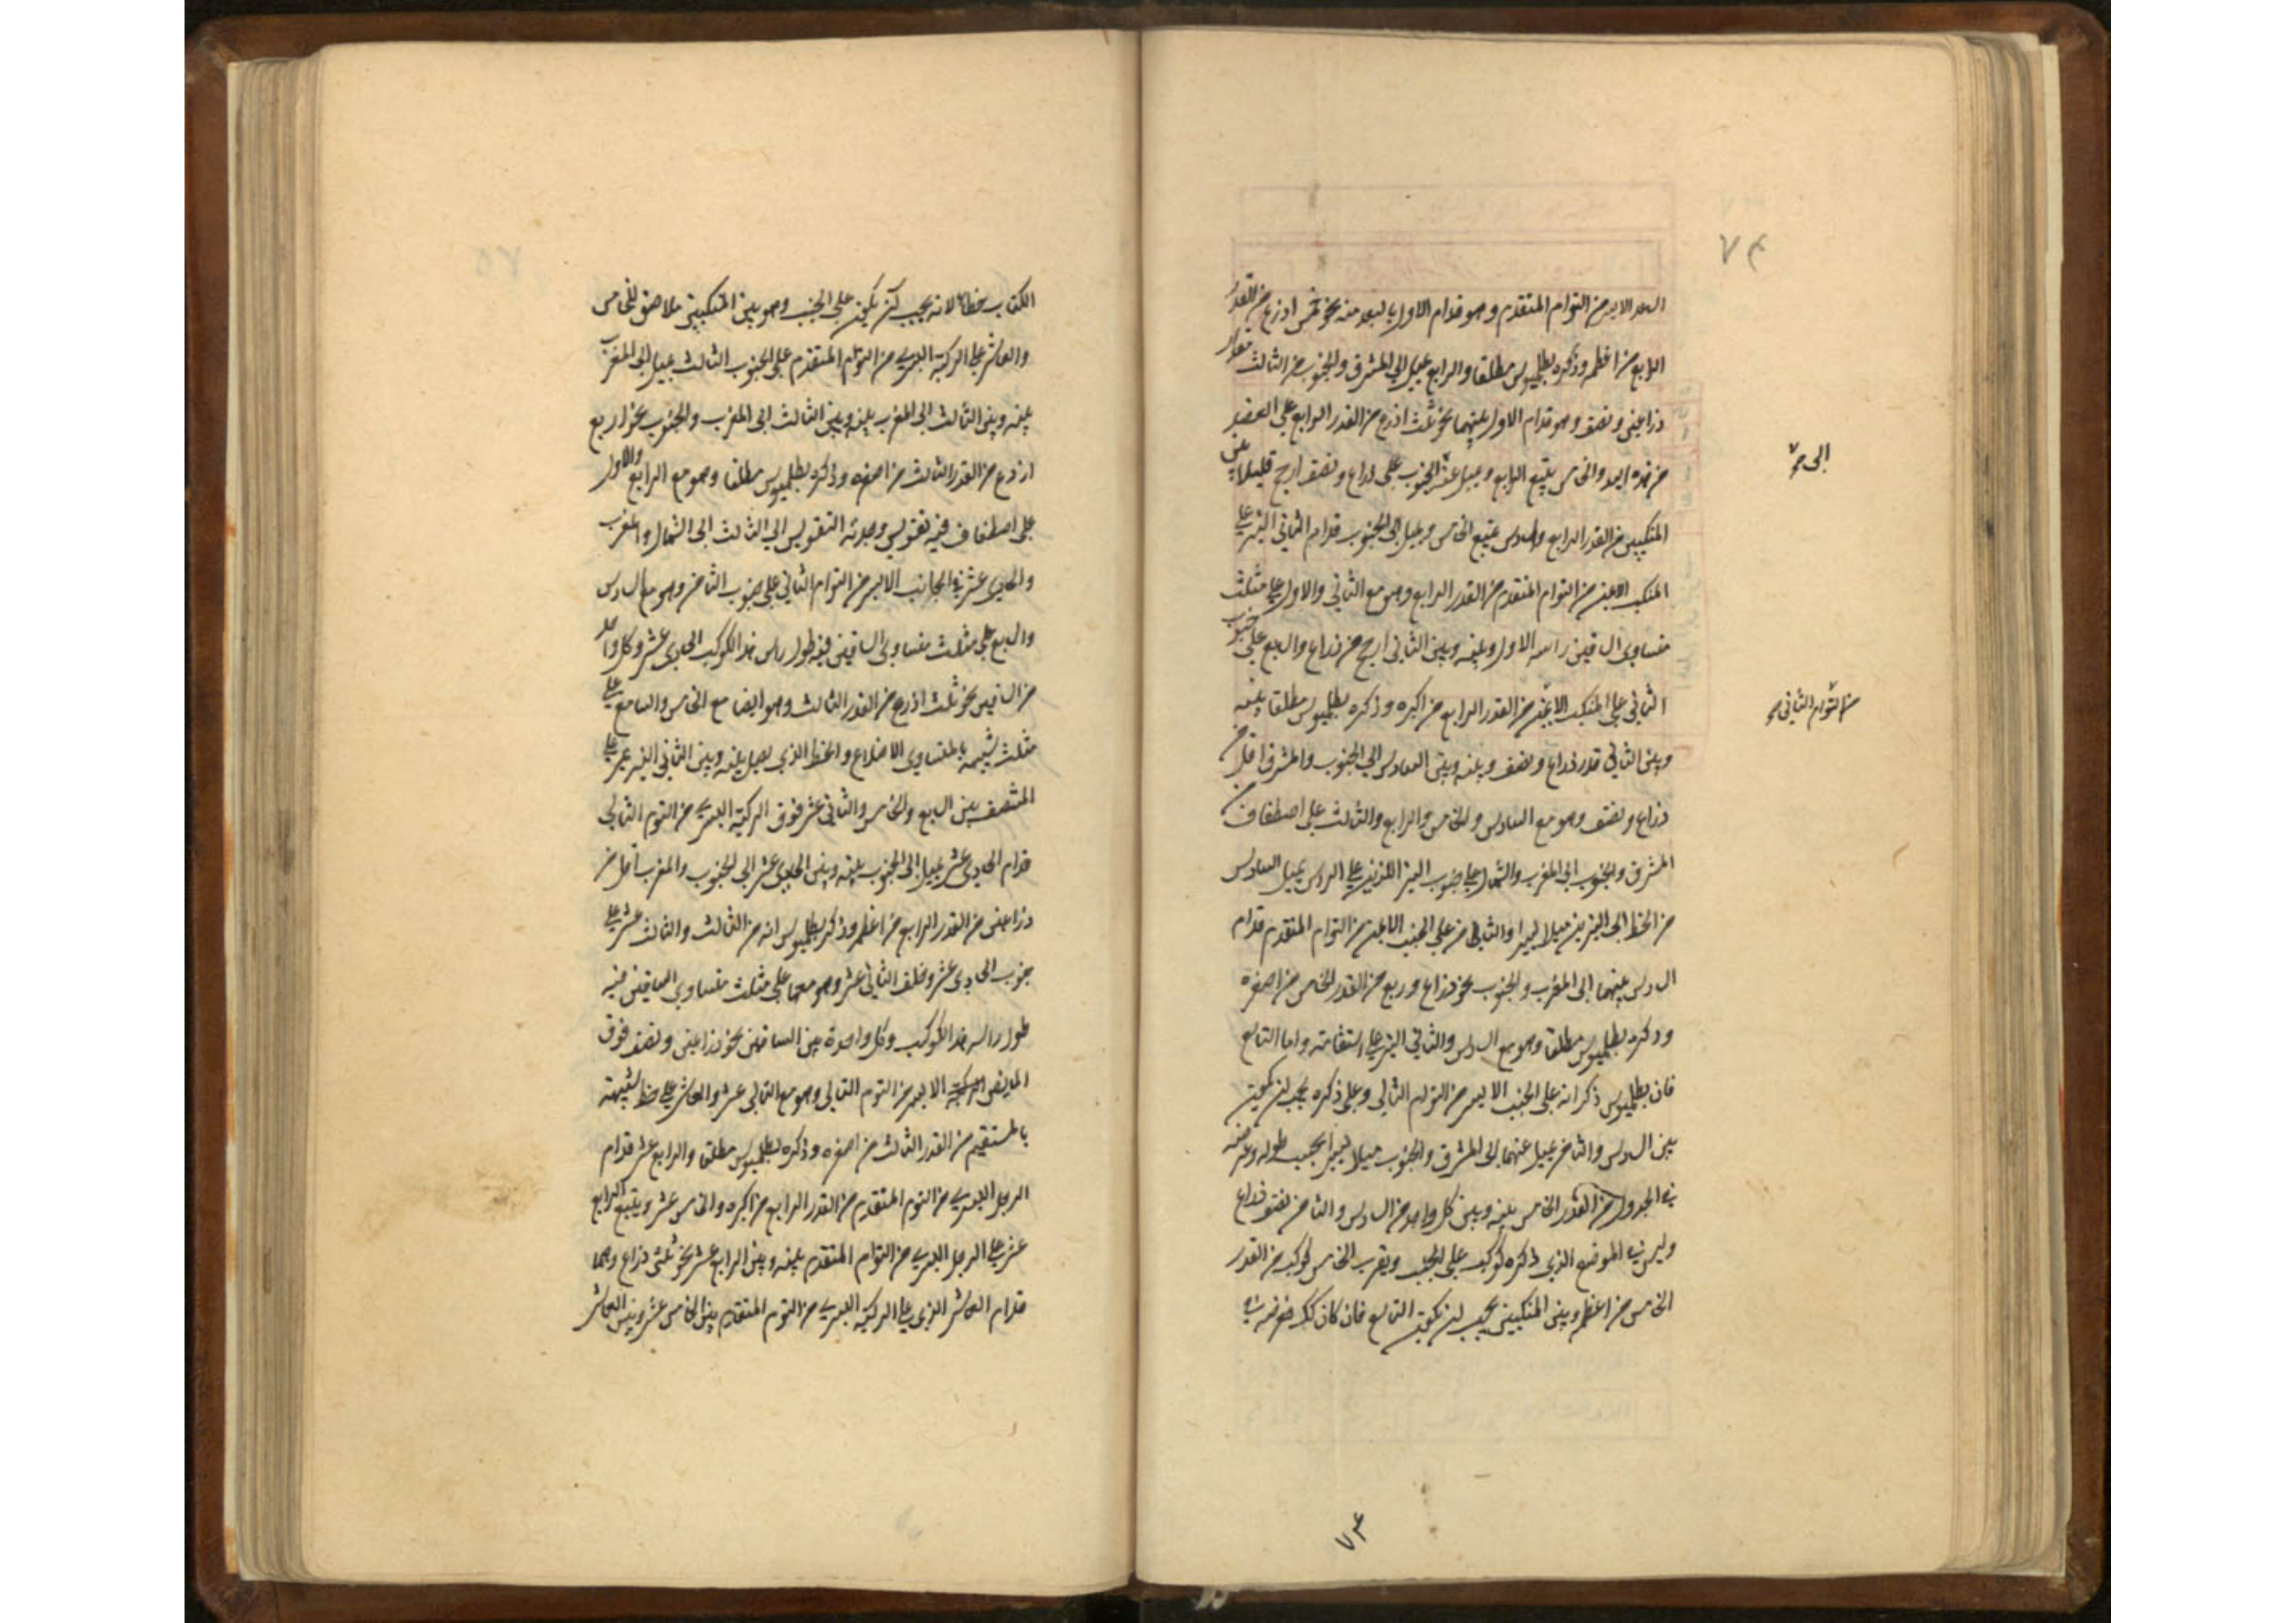 ٧٤
اليد الايسر من التوام المتقدم وهو قدام الاول بالبعد منه نحو خمس اذرع من القدر
الرابع من اعظمه وذكره بطلميوس مطلقا والرابع يميل الى المشرق والجنوب من الثالث مقدار
ذراعين ونصف وهو قدام الاول بينهما نحو ثلث اذرع من القدر الرابع على العضد
من هذه اليد والخامس يتبع الرابع ويميل عنه الى الجنوب على ذراع ونصف ارجح قليلا بين
المنكبين من القدر الرابع والسادس يتبع الخامس ويميل الى الجنوب قدام الثاني النير على
المنكب الايمن من التوام المتقدم من القدر الرابع وهو مع الثاني والاول على مثلث
متساوى الساقين راسه الاول وبينه وبين الثاني ارجح من ذراع والسابع على جنوب
الثاني على المنكب الايمن من القدر الرابع من اكبره وذكره بطلميوس مطلقا بينه
وبين الثاني قدر ذراع ونصف وبينه وبين السادس الى الجنوب والمشرق اقل من
ذراع ونصف وهو مع السادس والخامس والرابع والثالث على اصطفاف
المشرق والجنوب الى المغرب والشمال على جنوب النيرين اللذين على الراس يميل السادس
من الخط الى النيرين ميلا يسيرا والثامن على الجنب الايمن من التوام المتقدم قدام
السادس بينهما الى المغرب والجنوب نحو ذراع وربع من القدر الخامس من اصغره
وذكره بطلميوس مطلقا وهو مع السادس والثاني النير على استقامة واما التاسع
فان بطلميوس ذكر انه على الجنب الايسر من التوام التالي وعلى ذكره يجب ان يكون
بين السادس والثامن يميل عنهما الى المشرق والجنوب ميلا يسيرا بحسب طوله وعرضه
في الجدول من القدر الخامس بينه وبين كل واحد من السادس والثامن نصف ذراع
وليس في الموضع الذي ذكره كوكب على الجنب وبقرب الخامس كوكب من القدر
الخامس من اعظمه وبين المنكبين يجب ان يكون التاسع فان كان كذلك فعرضه في
الى ح
من التوام الثاني ح
٧٤
٧٥
الكتاب خطا لانه يجب ان يكون على الجنب وهو بين المنكبين ملاصق للخامس
والعاشر على الركبة اليسرى من التوام المتقدم على الجنوب الثالث يميل الى المغرب
بينه وبين الثالث الى المغرب بينه وبين الثالث الى المغرب والجنوب نحو اربع
اذرع من القدر الثالث من اصغره وذكره بطلميوس مطلقا وهو مع الرابع والاول
على اصطفاف فيه تقويس وحدبة التقويس الى الثالث الى الشمال والمغرب
والحادي عشر في الجانب الايسر من التوام الثاني على جنوب الثامن وهو مع السادس
والسابع على مثلث متساوى الساقين فيه طول راس هذا الكوكب الحادي عشر وكل واحد
من الساقين نحو ثلث اذرع من القدر الثالث وهو ايضا مع الخامس والسابع على
مثلث شبيه بالمتساوى الاضلاع والخط الذي يصل بينه وبين الثاني النير يمر على
المنتصف بين السابع والخامس والثاني عشر فوق الركبة اليسرى من التوم التالي
قدام الحادي عشر يميل الى الجنوب بينه وبين الحادي عشر الى الجنوب والمغرب اقل من
ذراعين من القدر الرابع من اعظمه وذكر بطلميوس انه من الثالث والثالث عشر على
جنوب الحادي عشر وخلف الثاني عشر وهو معهما على مثلث متساوى الساقين فيه
طول راسه هذا الكوكب وكل واحدة من الساقين نحو ذراعين ونصف فوق
المابض الايسر من التوم التالي وهو مع الثاني عشر والعاشر على خط شبيه
بالمستقيم من القدر الثالث من اصغره وذكره بطلميوس مطلقا والرابع عشر قدام
الرجل اليسرى من التوم المتقدم من القدر الرابع من اكبره والخامس عشر ويتبع الرابع
عشر على الرجل اليسرى من التوام المتقدم بينه وبين الرابع عشر نحو ثلثى ذراع وهما
قدام العاشر الذي على الركبة اليسرى من التوم المتقدم بين الخامس عشر وبين العاشر